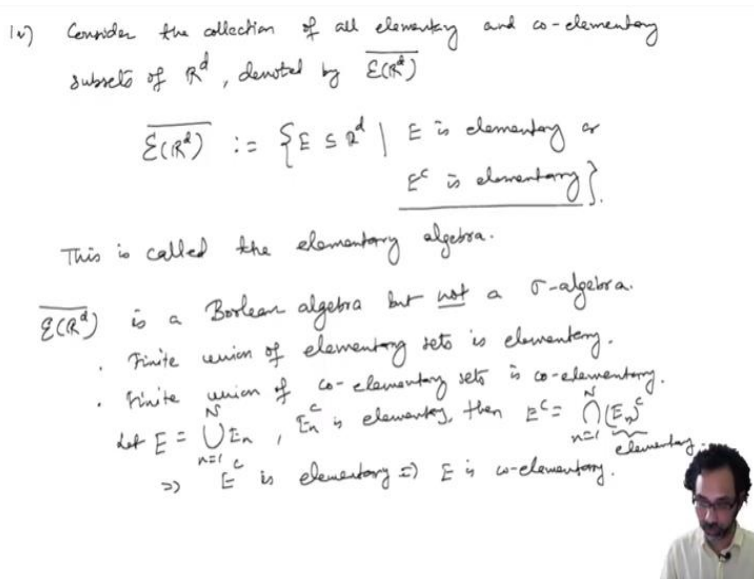 iv) Consider the collection of all elementary and co-elementary
subsets of ℝᵈ, denoted by \overline{ℰ(ℝᵈ)}
\overline{ℰ(ℝᵈ)} := { E ⊆ ℝᵈ | E is elementary or
Eᶜ is elementary }.
This is called the elementary algebra.
\overline{ℰ(ℝᵈ)} is a Boolean algebra but not a σ-algebra.
· Finite union of elementary sets is elementary.
· Finite union of co-elementary sets is co-elementary.
Let E = ⋃_{n=1}^{N} Eₙ, Eₙᶜ is elementary, then Eᶜ = ⋂_{n=1}^{N} (Eₙ)ᶜ
elementary.
⇒ Eᶜ is elementary ⇒ E is co-elementary.